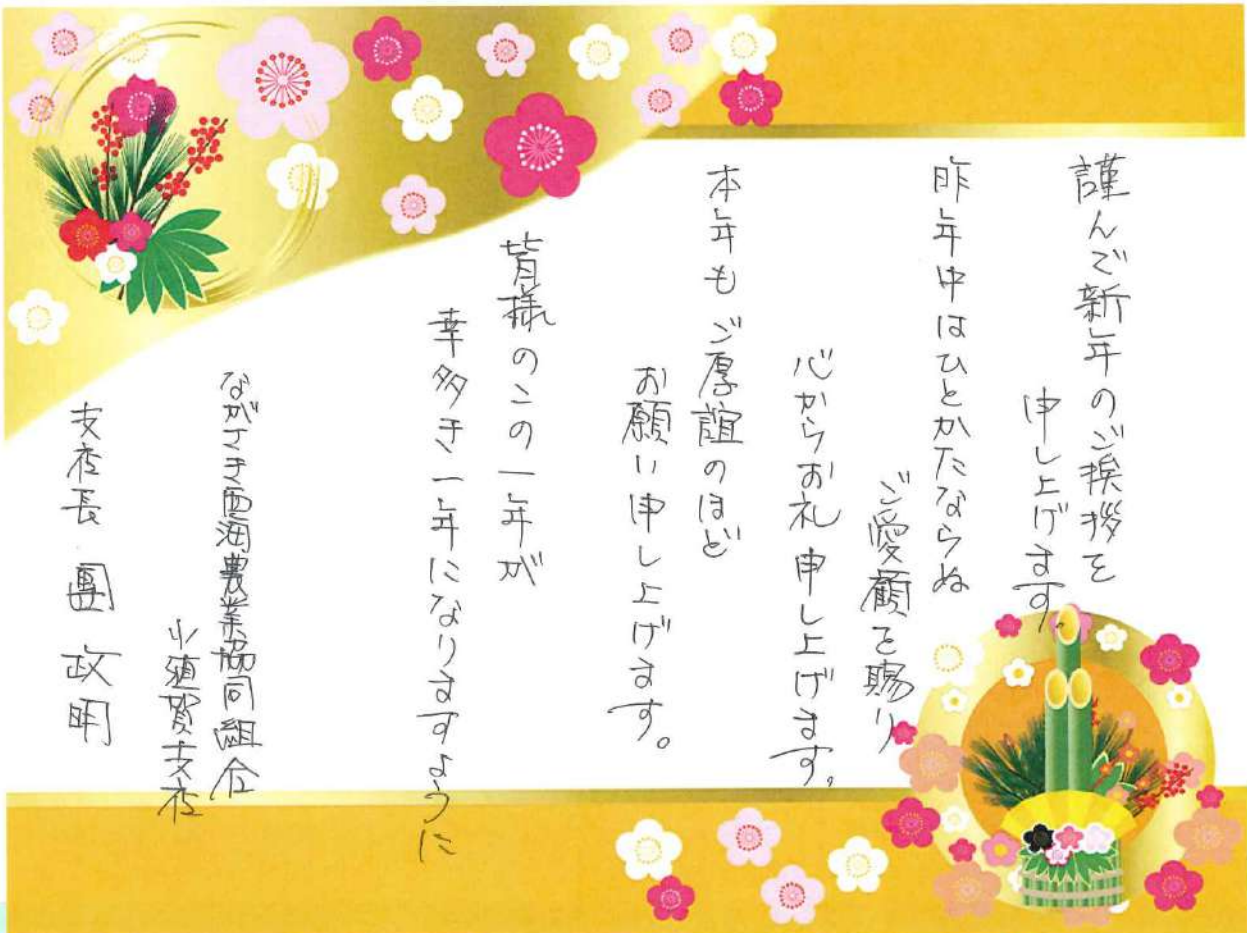 謹んで新年のご挨拶を
申し上げます。
昨年中はひとかたならぬ
ご愛顧を賜り
心からお礼申し上げます。
本年もご厚誼のほど
お願い申し上げます。
皆様のこの一年が
幸多き一年になりますように
ながさき西海農業協同組合
小須賀支店
支店長 園 政明